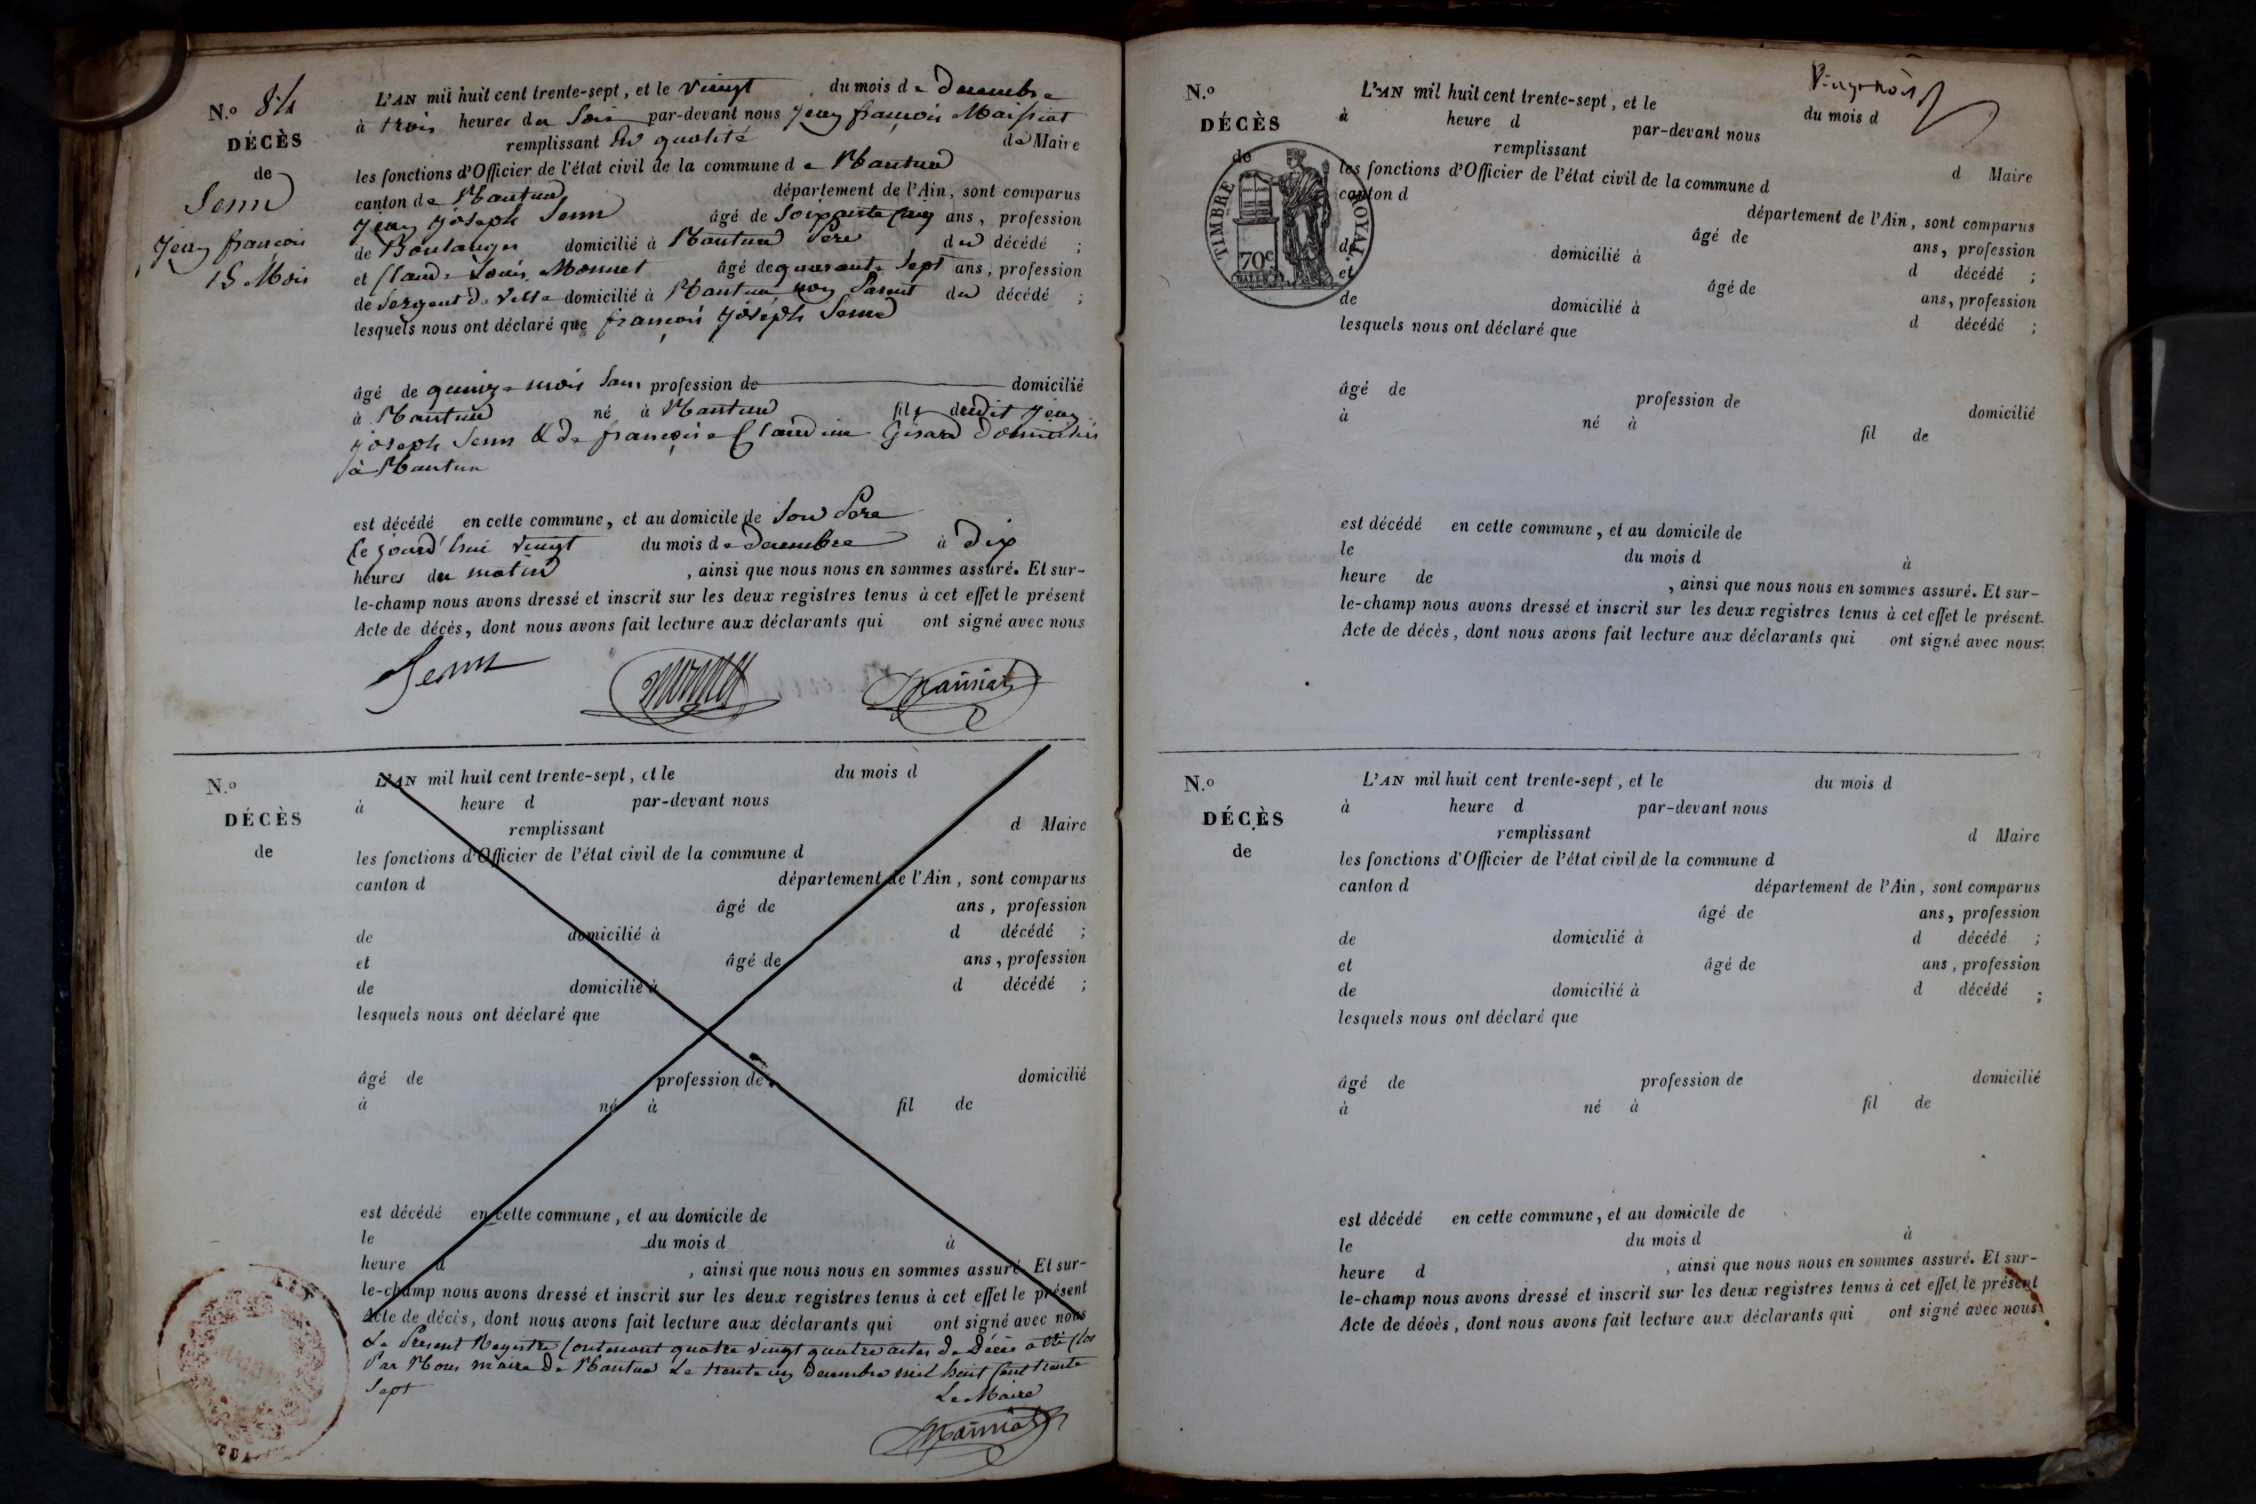 N.º 84
DÉCÈS
de
Senn
Jean françois
15 Mois
L'AN mil huit cent trente-sept, et le vingt du mois de décembre
à trois heures du soir par-devant nous Jean françois Maissiat
remplissant En qualité de Maire
les fonctions d'Officier de l'état civil de la commune de Nantua
canton de Nantua département de l'Ain, sont comparus
Jean Joseph Senn âgé de soixante cinq ans, profession
de Boulanger domicilié à Nantua Père du décédé ;
et Claude Louis Monnet âgé de quarante sept ans, profession
de sergent de ville domicilié à Nantua non Parent du décédé ;
lesquels nous ont déclaré que françois Joseph Senn
âgé de quinze mois sans profession de domicilié
à Nantua né à Nantua fils dudit Jean
Joseph Senn & de françoise Claudine Girard Domiciliés
à Nantua
est décédé en cette commune, et au domicile de son Père
le jourd'hui vingt du mois de décembre à dix
heures du matin , ainsi que nous nous en sommes assuré. Et sur-
le-champ nous avons dressé et inscrit sur les deux registres tenus à cet effet le présent
Acte de décès, dont nous avons fait lecture aux déclarants qui ont signé avec nous
Senn Monnet Maissiat
N.º
DÉCÈS
de
L'AN mil huit cent trente-sept, et le du mois d
à heure d par-devant nous
remplissant d Maire
les fonctions d'Officier de l'état civil de la commune d
canton d département de l'Ain, sont comparus
âgé de ans, profession
de domicilié à d décédé ;
et âgé de ans, profession
de domicilié à d décédé ;
lesquels nous ont déclaré que
âgé de profession de domicilié
à né à fil de
est décédé en cette commune, et au domicile de
le du mois d à
heure d , ainsi que nous nous en sommes assuré. Et sur-
le-champ nous avons dressé et inscrit sur les deux registres tenus à cet effet le présent
Acte de décès, dont nous avons fait lecture aux déclarants qui ont signé avec nous
Le Present Registre Contenant quatre vingt quatre actes de Décès a été clos
Par Nous maire de Nantua Le trente un decembre mil huit cent trente
sept
Le Maire
Maissiat
N.º
DÉCÈS
de
TIMBRE ROYAL
70c
L'AN mil huit cent trente-sept, et le du mois d
à heure d par-devant nous
remplissant d Maire
les fonctions d'Officier de l'état civil de la commune d
canton d département de l'Ain, sont comparus
âgé de ans, profession
de domicilié à d décédé ;
et âgé de ans, profession
de domicilié à d décédé ;
lesquels nous ont déclaré que
âgé de profession de domicilié
à né à fil de
est décédé en cette commune, et au domicile de
le du mois d à
heure de , ainsi que nous nous en sommes assuré. Et sur-
le-champ nous avons dressé et inscrit sur les deux registres tenus à cet effet le présent.
Acte de décès, dont nous avons fait lecture aux déclarants qui ont signé avec nous.
N.º
DÉCÈS
de
L'AN mil huit cent trente-sept, et le du mois d
à heure d par-devant nous
remplissant d Maire
les fonctions d'Officier de l'état civil de la commune d
canton d département de l'Ain, sont comparus
âgé de ans, profession
de domicilié à d décédé ;
et âgé de ans, profession
de domicilié à d décédé ;
lesquels nous ont déclaré que
âgé de profession de domicilié
à né à fil de
est décédé en cette commune, et au domicile de
le du mois d à
heure d , ainsi que nous nous en sommes assuré. Et sur-
le-champ nous avons dressé et inscrit sur les deux registres tenus à cet effet le présent
Acte de décès, dont nous avons fait lecture aux déclarants qui ont signé avec nous.